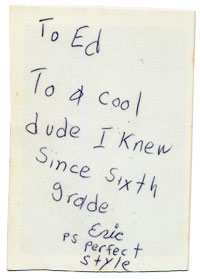 To Ed
To a cool
dude I Knew
Since Sixth
grade
Eric
PS perfect
Style